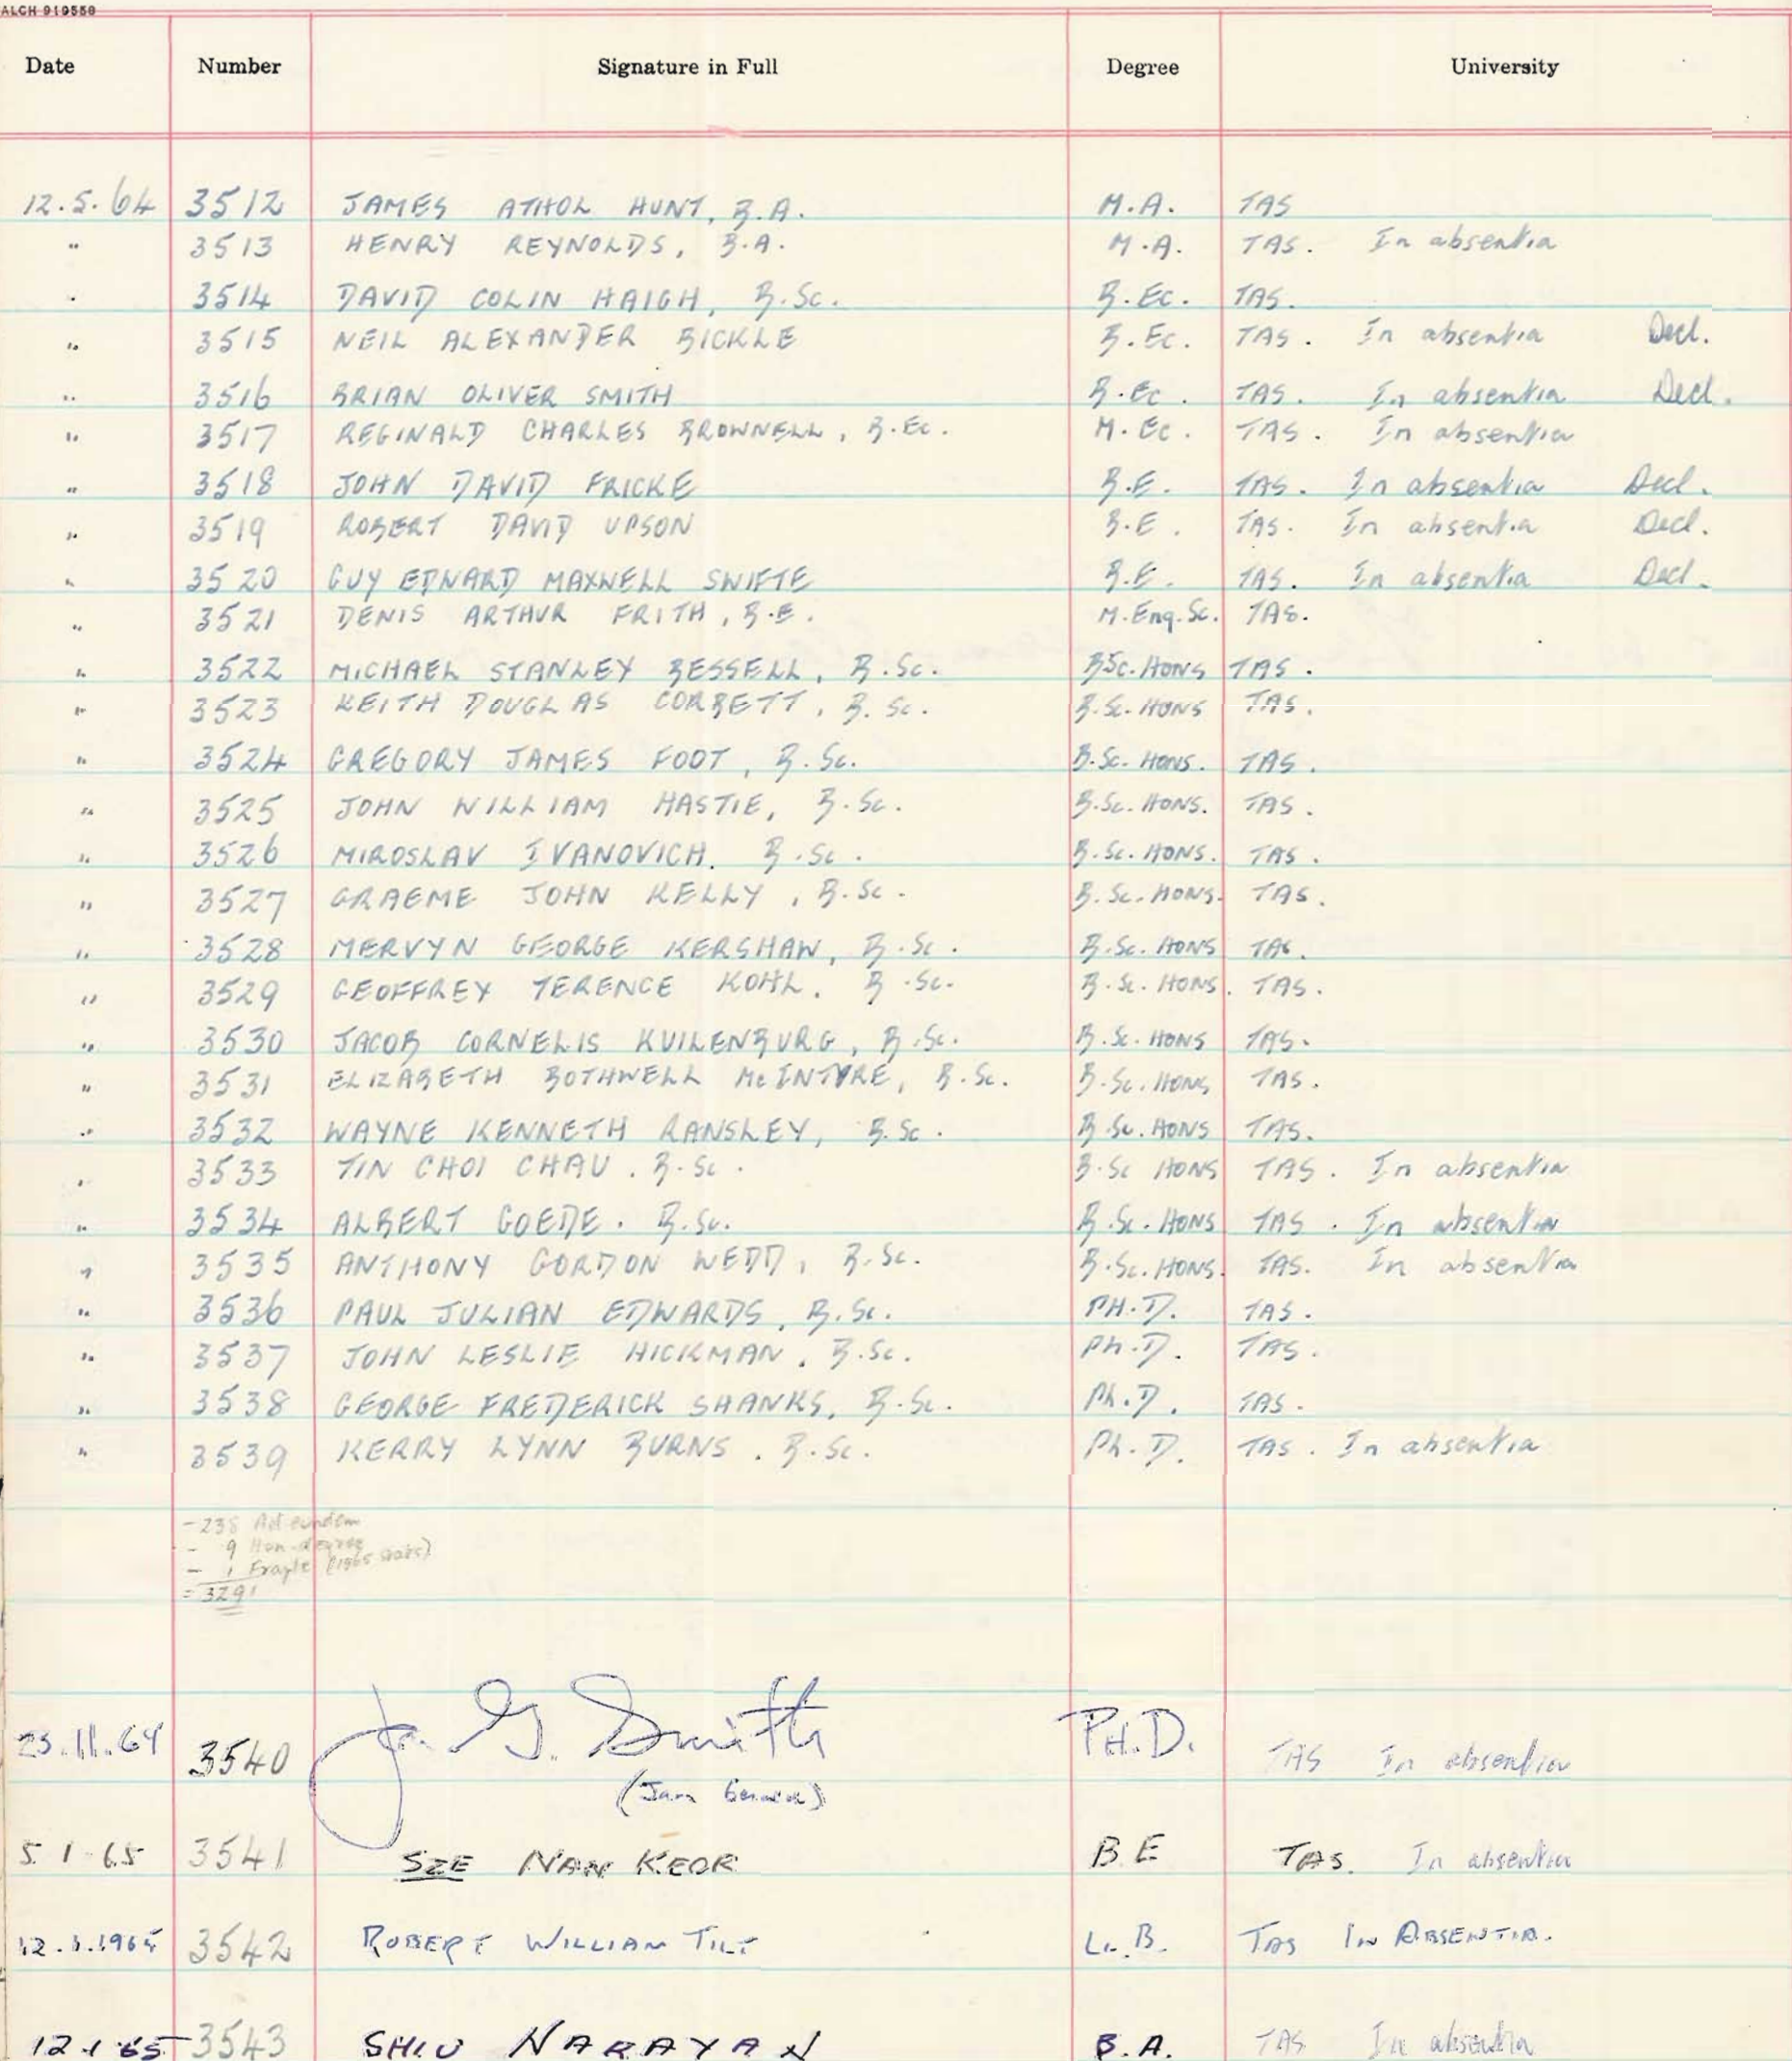 ALCH 919558
Date Number Signature in Full Degree University
12.5.64 3512 JAMES ATHOL HUNT, B.A. M.A. TAS
" 3513 HENRY REYNOLDS, B.A. M.A. TAS. In absentia
" 3514 DAVID COLIN HAIGH, B.Sc. B.Ec. TAS.
" 3515 NEIL ALEXANDER BICKLE B.Ec. TAS. In absentia Decl.
" 3516 BRIAN OLIVER SMITH B.Ec. TAS. In absentia Decl.
" 3517 REGINALD CHARLES BROWNELL, B.Ec. M.Ec. TAS. In absentia
" 3518 JOHN DAVID FRICKE B.E. TAS. In absentia Decl.
" 3519 ROBERT DAVID UPSON B.E. TAS. In absentia Decl.
" 3520 GUY EDWARD MAXWELL SWIFTE B.E. TAS. In absentia Decl.
" 3521 DENIS ARTHUR FRITH, B.E. M.Eng.Sc. TAS.
" 3522 MICHAEL STANLEY BESSELL, B.Sc. BSc.HONS TAS.
" 3523 KEITH DOUGLAS CORBETT, B.Sc. B.Sc.HONS TAS.
" 3524 GREGORY JAMES FOOT, B.Sc. B.Sc.HONS. TAS.
" 3525 JOHN WILLIAM HASTIE, B.Sc. B.Sc.HONS. TAS.
" 3526 MIROSLAV IVANOVICH. B.Sc. B.Sc.HONS. TAS.
" 3527 GRAEME JOHN KELLY, B.Sc. B.Sc.HONS. TAS.
" 3528 MERVYN GEORGE KERSHAW, B.Sc. B.Sc.HONS TAS.
" 3529 GEOFFREY TERENCE KOHL. B.Sc. B.Sc.HONS. TAS.
" 3530 JACOB CORNELIS KUILENBURG, B.Sc. B.Sc.HONS TAS.
" 3531 ELIZABETH BOTHWELL McINTYRE, B.Sc. B.Sc.HONS TAS.
" 3532 WAYNE KENNETH RANSLEY, B.Sc. B.Sc.HONS TAS.
" 3533 TIN CHOI CHAU. B.Sc. B.Sc HONS TAS. In absentia
" 3534 ALBERT GOEDE. B.Sc. B.Sc.HONS TAS. In absentia
" 3535 ANTHONY GORDON WEDD, B.Sc. B.Sc.HONS. TAS. In absentia
" 3536 PAUL JULIAN EDWARDS, B.Sc. PH.D. TAS.
" 3537 JOHN LESLIE HICKMAN. B.Sc. Ph.D. TAS.
" 3538 GEORGE FREDERICK SHANKS, B.Sc. Ph.D. TAS.
" 3539 KERRY LYNN BURNS. B.Sc. Ph.D. TAS. In absentia
- 238 Ad eundem
- 9 Hon. degree
- 1 (1965 stats)
= 3291
23.11.64 3540 J. G. Smith PH.D. TAS In absentia
5 1 65 3541 SZE NAN KEOK B E TAS. In absentia
12.1.1965 3542 ROBERT WILLIAM TILT LL.B. TAS IN ABSENTIA.
12 1 65 3543 SHIU NARAYAN B.A. TAS In absentia